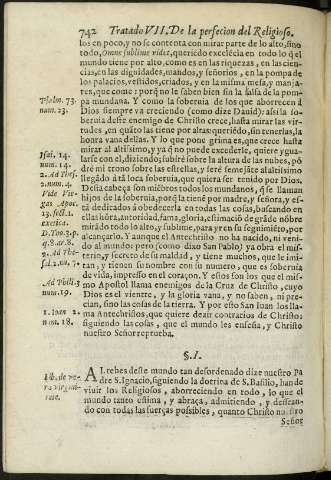 742 Tratado VII. De la perfecion del Religioso.
los en poco, y no se contenta con mirar parte de lo alto, sino
todo, Omne sublime videt, querido excelécia en todo lo q̃ el
mundo tiene por alto, como es en las riquezas, en las cien-
cias, en las dignidades, mandos, y señorios, en la pompa de
los palacios, vestidos, criados, y en la misma mesa, y manja-
res, que come: porq̃ no le saben bien sin la salsa de la pom-
pa mundana. Y como la soberuia de los que aborrecen á
Dios siempre va creciendo (como dize Dauid) assi la so-
beruia deste enemigo de Christo crece, hasta mirar las vir-
tudes, en quáto las tiene por altas: queriédo, sin tenerlas, la
honra vana dellas. Y lo que pone grima es, que crece hasta
mirar al altissimo, y ya q̃ no puede excederle, quiere ygua-
larse con el, diziendo; subiré sobre la altura de las nubes, pó
dré mi trono sobre las estrellas, y seré semejáte al altissimo
llegádo á tá loca soberuia, que quiera ser tenido por Dios.
Desta cabeça son miẽbros todos los mundanos, q̃ se llaman
hijos de la soberuia, porq̃ la tiené por madre, y señora, y es-
tá dedicados á obedecerla en todas las cosas, buscando en
ellas hóra, autoridad, fama, gloria, estimació de gráde nóbre
mirádo todo lo alto, y sublime, para yr en su seguimiẽto, por
alcançarlo. Y aunque el Antechristo no ha nacido, ni veni-
do al mundo: pero (como dixo San Pablo) ya obra el mis-
terio, y secreto de su maldad, y tiene muchos, que le imi-
tan, y tienen su nombre con su numero, que es soberuia
de vida, impresso en el coraçon. Y estos son los que el mis-
mo Apostol llama enemigos de la Cruz de Christo, cuyo
Dios es el vientre, y la gloria vana, y no saben, ni pre-
cian, sino las cosas de la tierra. Y por esto San Ioan los lla-
ma Antechristos, que quiere dezir contrarios de Christo
siguiendo las cosas, que el mundo les enseña, y Christo
nuestro Señor reprueba.
Psalm. 73.
num. 23.
Isai. 14.
num. 14.
2. Ad Thes.
2. num. 4.
Vide Vie
gas Apoc.
13. sect. 1.
D. Tho. 3. p.
q. 8. ar. 8.
2. Ad The-
Ad Phili. 3
num. 19.
1. Ioan 2.
num. 18.
§. I.
AL rebes deste mundo tan desordenado dize nuestro Pa
dre S. Ignacio, siguiendo la doctrina de S. Basilio, han de
viuir los Religiosos, aborreciendo en todo, lo que el
mundo tanto estima, y abraça, admitiendo, y dessean-
do con todas las fuerças possibles, quanto Christo nuestro
Señor
Lib. de ve-
ra virgini-
tate.